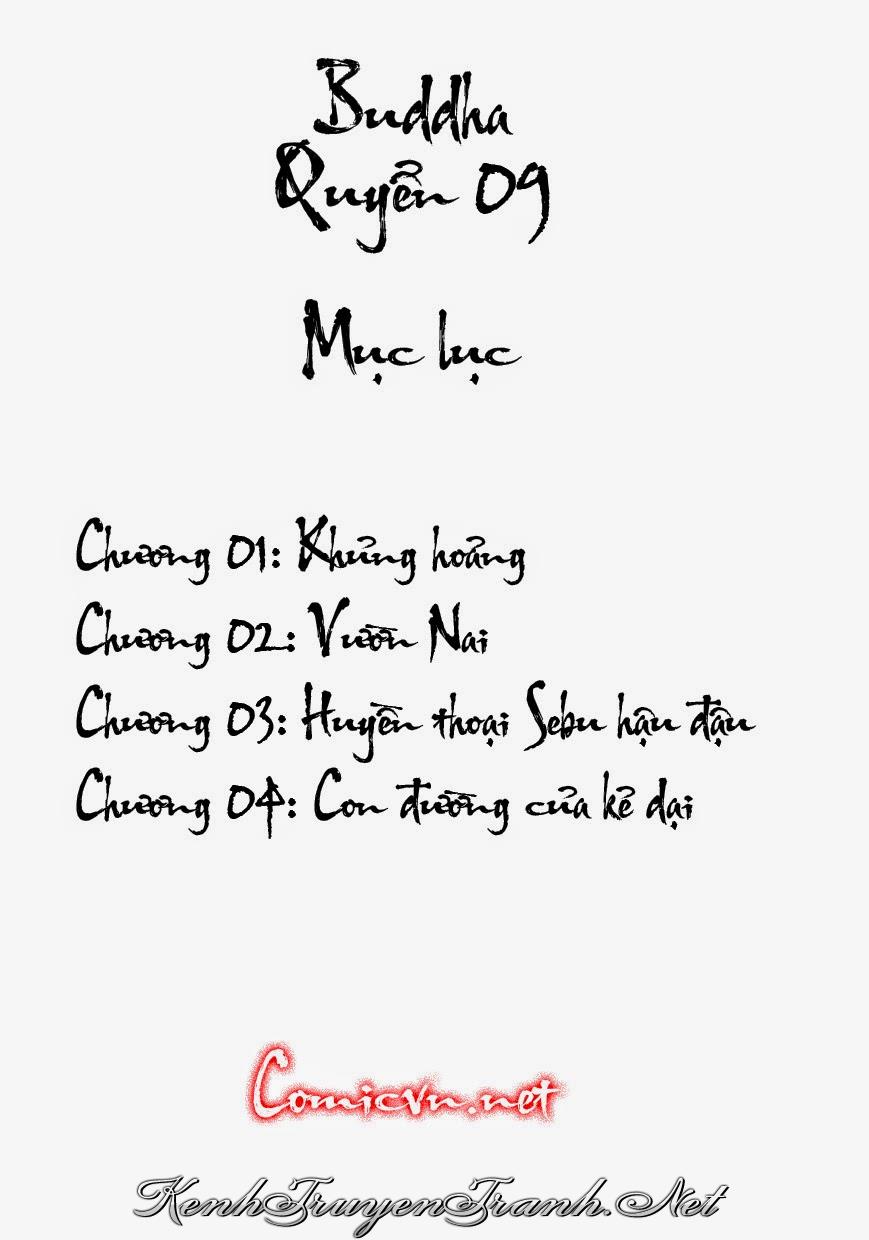 Buddha
Quyển 09
Mục lục
Chương 01: Khủng hoảng
Chương 02: Vườn Nai
Chương 03: Huyền thoại Sebu hậu đậu
Chương 04: Con đường của kẻ dại
Comicvn.net
KenhTruyenTranh.Net